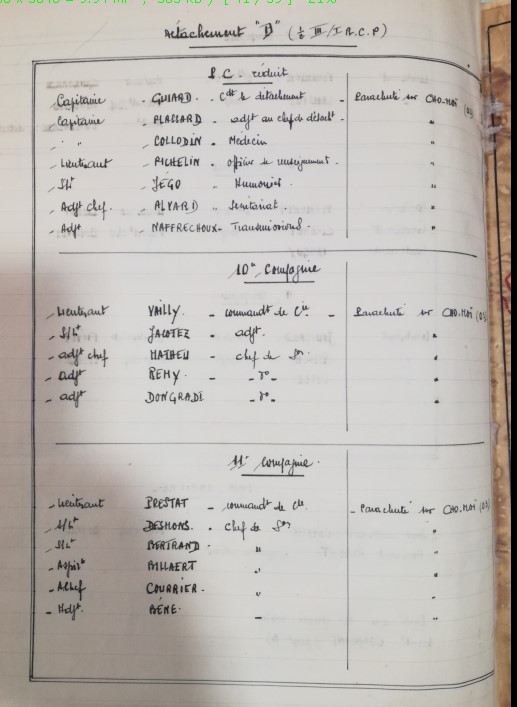 Détachement "D" (½ III/I R.C.P)
S.C. réduit
Capitaine - GUIARD. - Cdt le détachement - Parachuté sur CHO-MOÏ (03)
Capitaine - PLACIARD - adjt au chef de détacht - "
" - COLLODIN - Medecin "
- Lieutenant - PICHELIN - officier de renseignement - "
- S/Lt - JEGO - "
- Adjt chef - ALVARD - Secrétariat. "
- Adjt - NAFFRECHOUX - Transmissions. "
10e Compagnie
- Lieutenant VAILLY - commandt de Cie - Parachuté sur CHO-MOÏ (03)
- S/Lt JACOTEZ - adjt. "
- adjt chef MATHEU - chef de Son "
- adjt REMY - - do - "
- adjt DONGRADI - do - "
11e Compagnie.
- Lieutenant PRESTAT - commandt de Cie - Parachuté sur CHO-MOÏ (03)
- S/Lt DESMONS - chef de Son "
- S/Lt BERTRAND - " "
- Aspirt BILLAERT " "
- A/Chef COURRIER - " "
- Adjt. BÉNÉ - - "